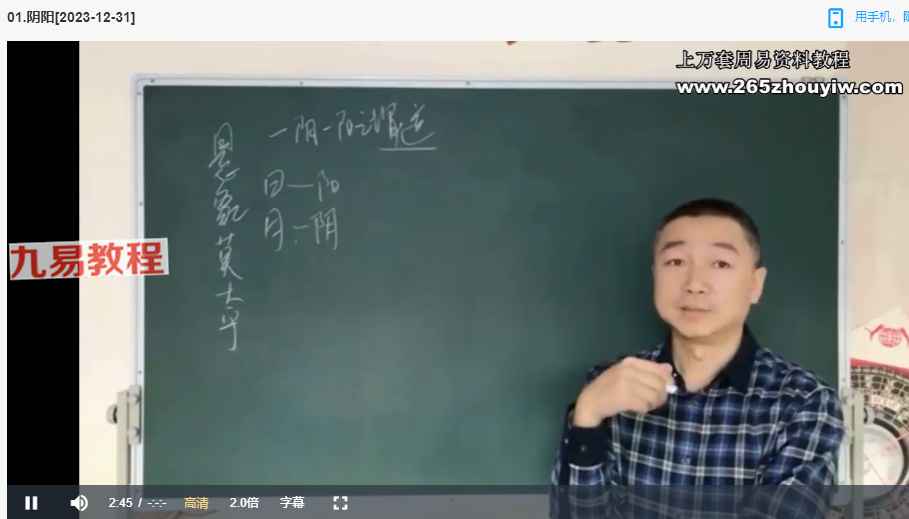 01.阴阳[2023-12-31]
用手机,
上万套周易资料教程
www.265zhouyiw.com
一阴一阳之谓道
日—阳
月—阴
悬象莫大乎
九易教程
2:45 / -:-:-
高清
2.0倍
字幕